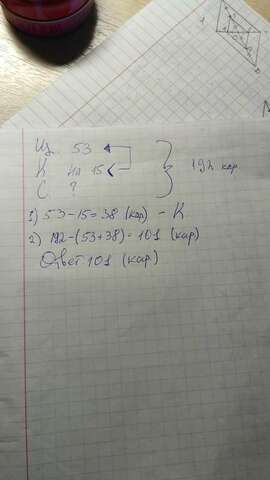 Из 53
К на 15 <
С ?
} 192 кар.
1) 53-15=38 (кар) - К
2) 192-(53+38)=101 (кар)
Ответ 101 (кар)